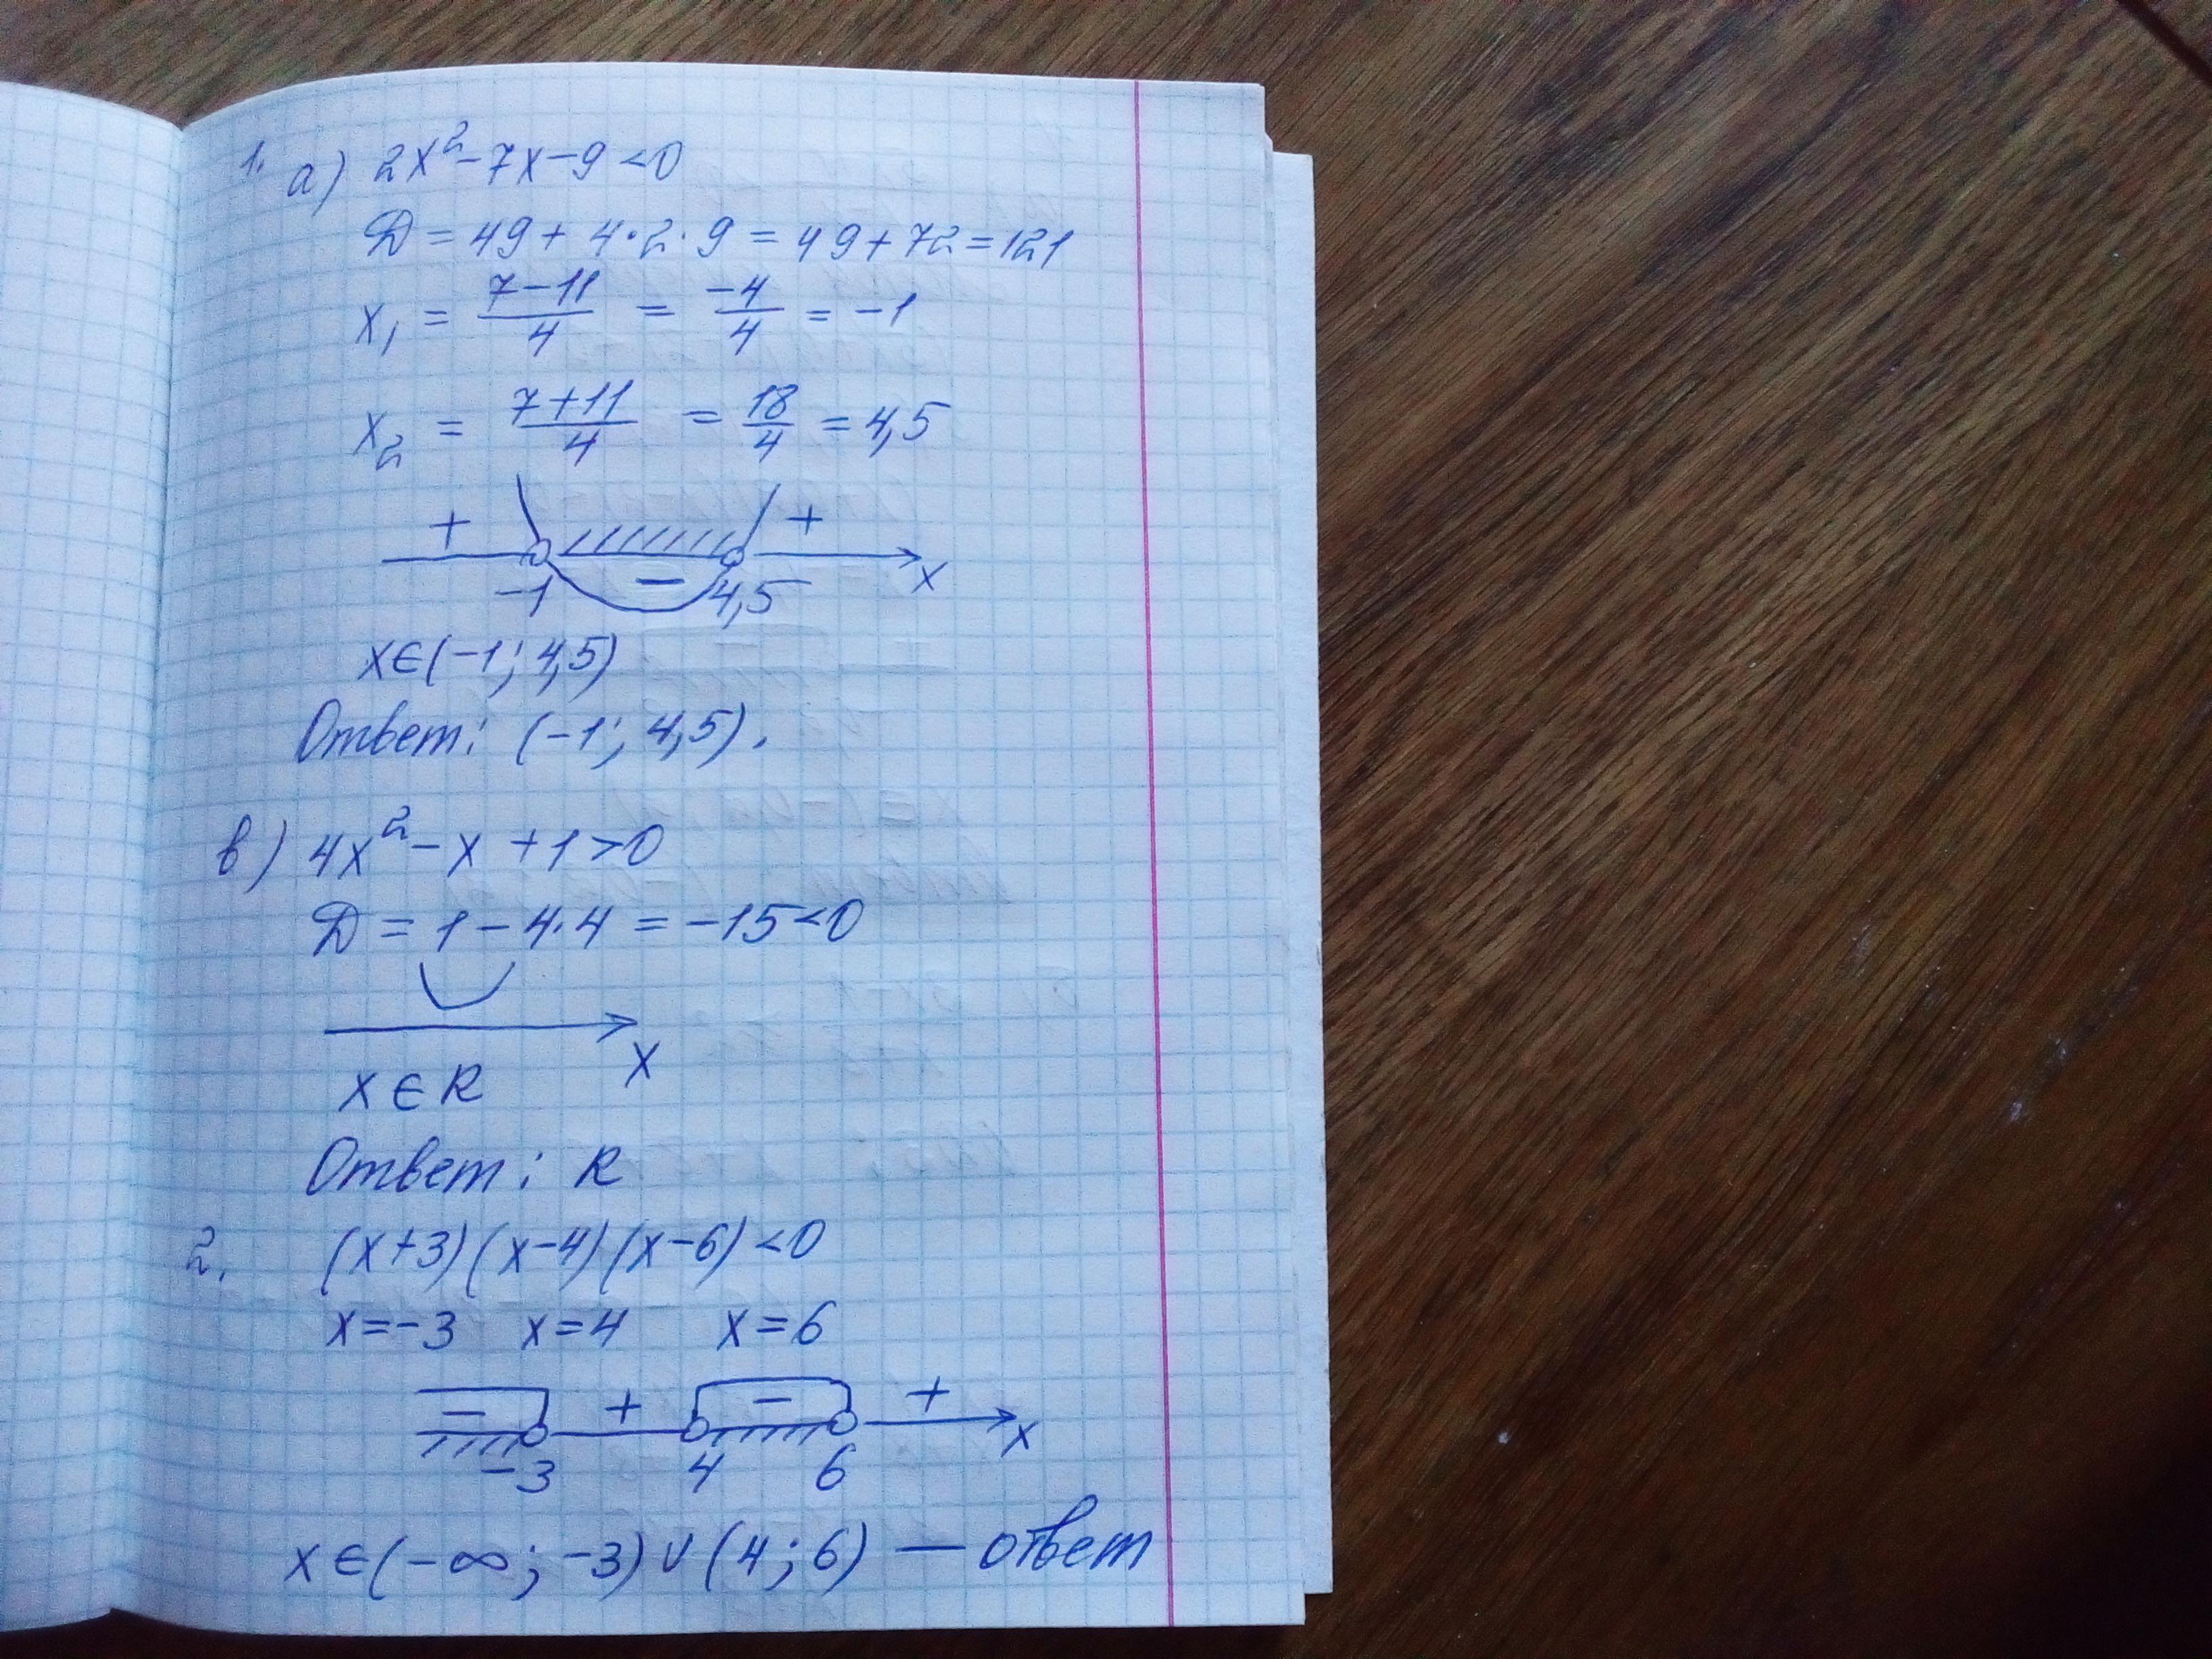 1. а) 2x² - 7x - 9 < 0
Д = 49 + 4·2·9 = 49 + 72 = 121
x₁ = (7-11)/4 = -4/4 = -1
x₂ = (7+11)/4 = 18/4 = 4,5
+ +
−
-1 4,5 x
x∈(-1; 4,5)
Ответ: (-1; 4,5).
в) 4x² - x + 1 > 0
Д = 1 - 4·4 = -15 < 0
x
x ∈ R
Ответ: R
2. (x+3)(x-4)(x-6) < 0
x = -3 x = 4 x = 6
− + − +
-3 4 6 x
x ∈ (-∞; -3) ∪ (4; 6) — ответ